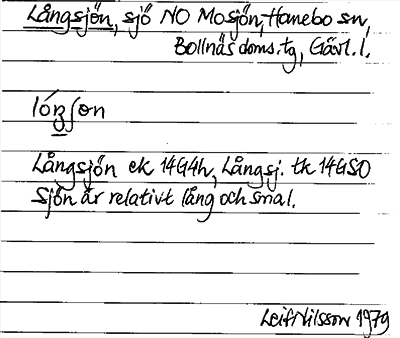 Långsjön, sjö NO Mosjön, Hanebo sn,
Bollnäs doms.tg, Gävl. l.
lóŋʃøn
Långsjön ek 14G4h, Långsj. tk 14GSO
Sjön är relativt lång och smal.
Leif Nilsson 1979